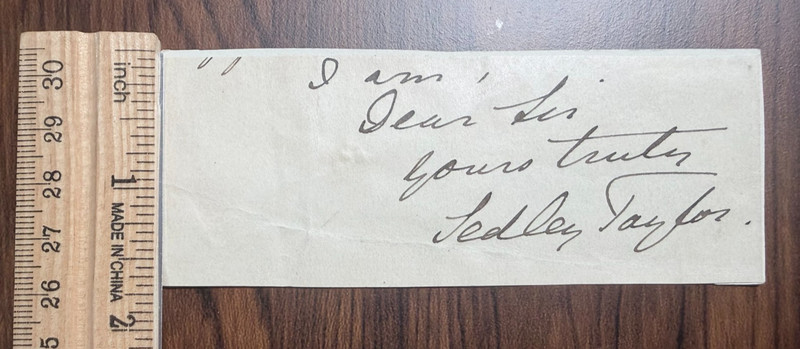 I am,
Dear Sir
yours truly
Sedley Taylor.
30
29
28
27
26
inch
1
MADE IN CHINA
2